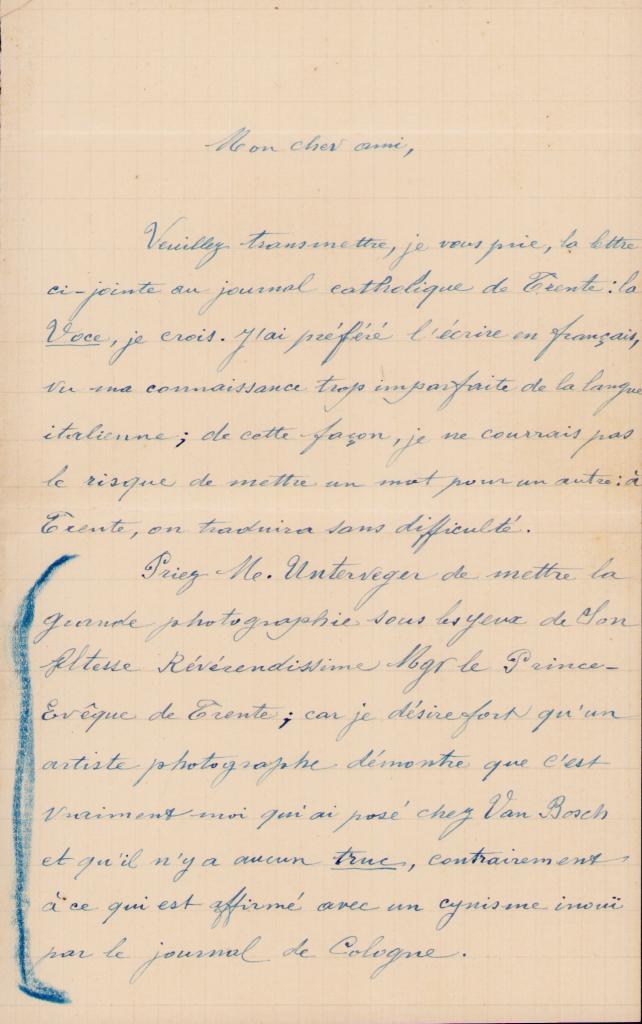 Mon cher ami,
Veuillez transmettre, je vous prie, la lettre
ci-jointe au journal catholique de Trente: la
Voce, je crois. J'ai préféré l'écrire en français,
vu ma connaissance trop imparfaite de la langue
italienne; de cette façon, je ne courrais pas
le risque de mettre un mot pour un autre: à
Trente, on traduira sans difficulté.
Priez Me. Unterveger de mettre la
grande photographie sous les yeux de Son
Altesse Révérendissime Mgr le Prince-
Evêque de Trente; car je désire fort qu'un
artiste photographe démontre que c'est
vraiment moi qui ai posé chez Van Bosch
et qu'il n'y a aucun truc, contrairement
à ce qui est affirmé avec un cynisme inouï
par le journal de Cologne.